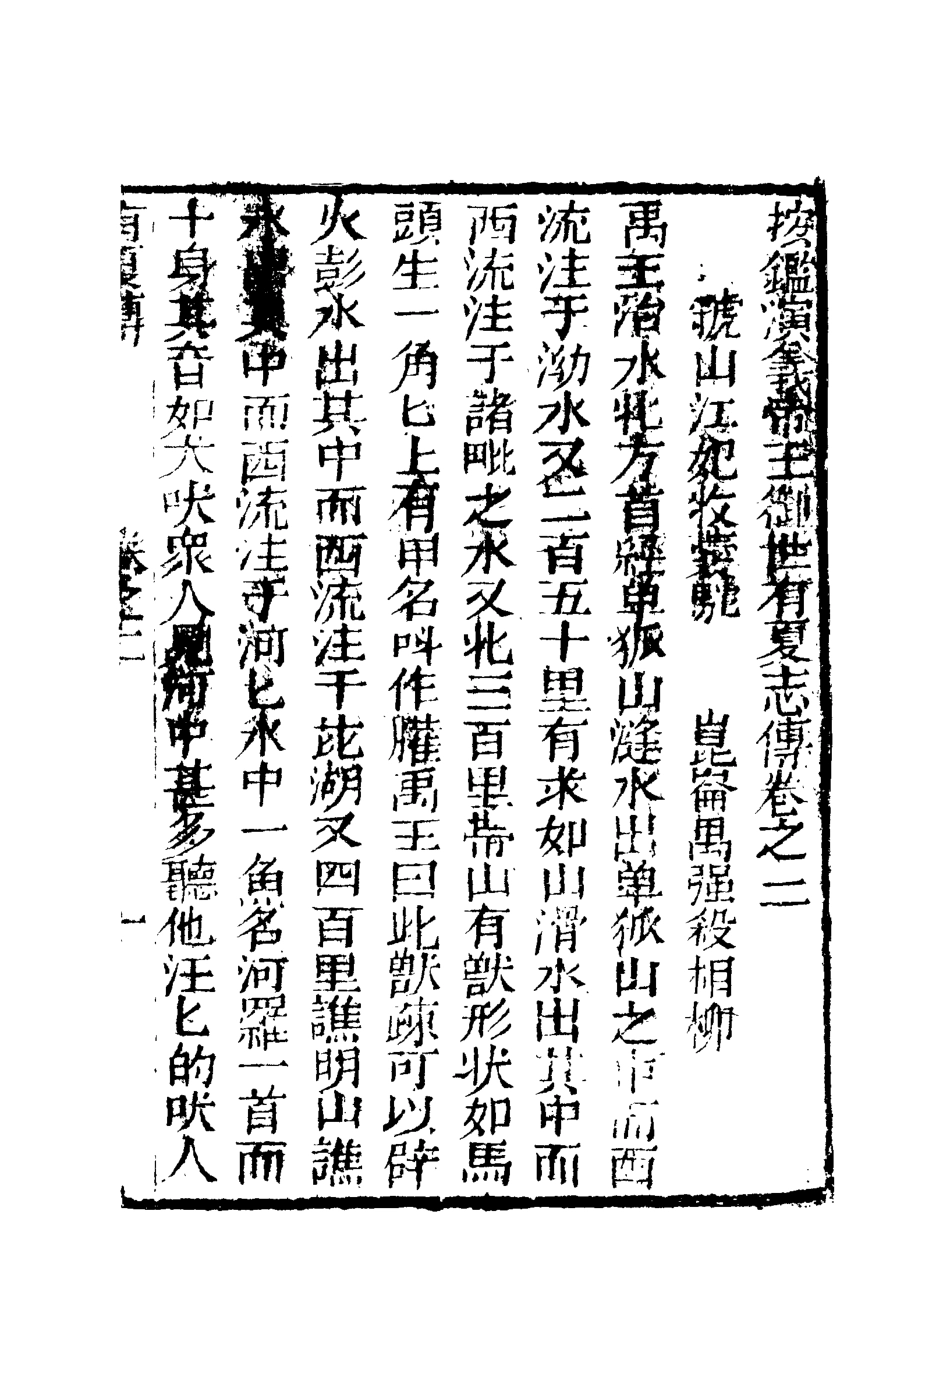 按鑑演義帝王御世有夏志傳卷之二
號山江妃收橐駝　崑崙禺强殺相柳
禹王治水北方首經单狐山漨水出单狐山之中而西
流注于泑水又二百五十里有求如山滑水出其中而
西流注于諸毗之水又北三百里帶山有獸形状如馬
頭生一角匕上有甲名呌作䑏禹王曰此獸疎可以辟
火彭水出其中而西流注于芘湖又四百里譙明山譙
水出其中而西流注于河匕水中一魚名河羅一首而
十身其音如犬吠衆人見河中甚多聽他汪匕的吠人
有夏傳　卷之二　一